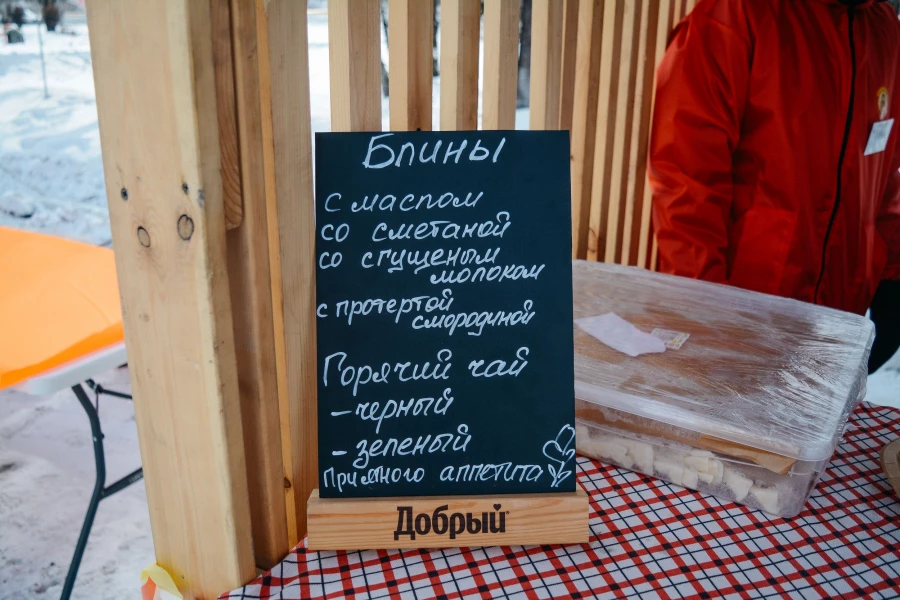 Блины
с маслом
со сметаной
со сгущеным
молоком
с протертой
смородиной
Горячий чай
- черный
- зеленый
Приятного аппетита
Добрый